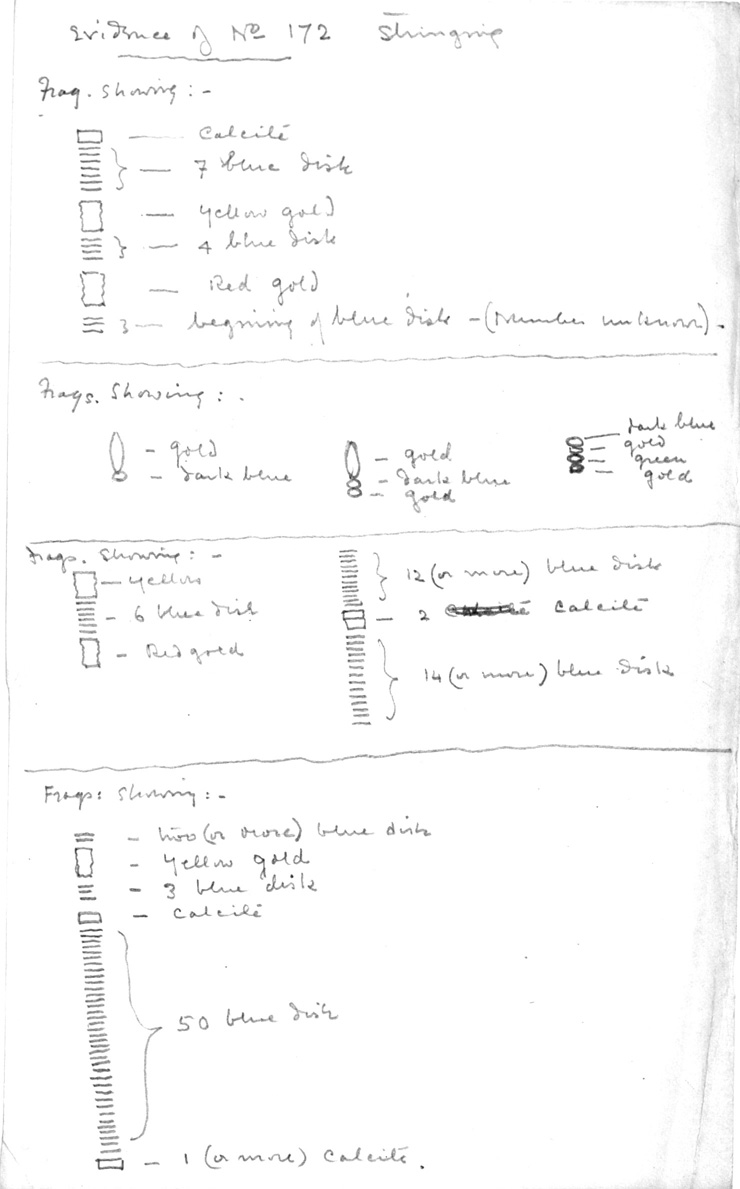 Evidence of No 172 Stringing
Frag. Showing :-
Calcite
} — 7 blue disk
— Yellow gold
} — 4 blue disk
— Red gold
3 — begining of blue disk - (Number unknown).
Frags. Showing : .
- gold
- dark blue
- gold
- dark blue
- gold
dark blue
gold
green
gold
Frags. Showing :-
- Yellow
- 6 blue disk
- Red gold
} 12 (or more) blue disk
- 2 Calcite
} 14 (or more) blue disk
Frags: Showing :-
- two (or more) blue disk
- Yellow gold
- 3 blue disk
- Calcite
} 50 blue disk
- 1 (or more) Calcite.